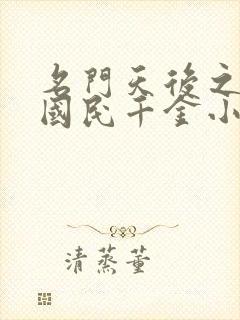 名門天後之
國民千金小
清蒸董